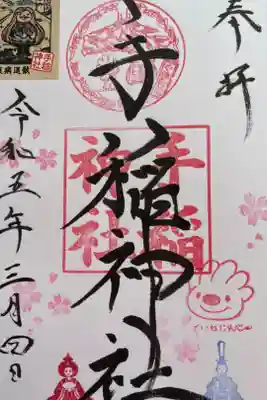 奉拝
手稲神社
手稲
神社
令和五年三月四日
手稲
神社